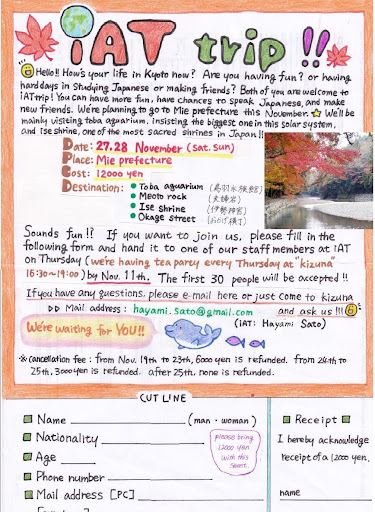 iAT trip!!
Hello!! How's your life in Kyoto now? Are you having fun? or having
hard days in studying Japanese or making friends? Both of you are welcome to
iATtrip! You can have more fun, have chances to speak Japanese, and make
new friends. We're planning to go to Mie prefecture this November. ☆ We'll be
mainly visiting toba aquarium, insisting the biggest one in this solar system,
and Ise shrine, one of the most sacred shrines in Japan!!
Date: 27.28 November (Sat. Sun)
Place: Mie prefecture
Cost: 12000 yen
Destination: • Toba aquarium (鳥羽水族館)
• Meoto rock (夫婦岩)
• Ise shrine (伊勢神宮)
• Okage street (おかげ横丁)
Sounds fun!? If you want to join us, please fill in the
following form and hand it to one of our staff members at iAT
on Thursday (we're having tea party every Thursday at "kizuna"
16:30~19:00) by Nov. 11th. The first 30 people will be accepted!!
If you have any questions, please e-mail here or just come to kizuna
and ask us!!!
▷▷ Mail address: hayami.sato@gmail.com
(iAT: Hayami Sato)
We're waiting for YOU!!
※ cancellation fee: from Nov. 19th to 23th, 6000 yen is refunded. from 24th to
25th, 3000 yen is refunded. after 25th. none is refunded.
CUT LINE
Name (man・woman)
Nationality
Age
Phone number
Mail address [PC]
please bring
12000 yen
with this
sheet.
Receipt
I hereby acknowledge
receipt of a 12000 yen.
name